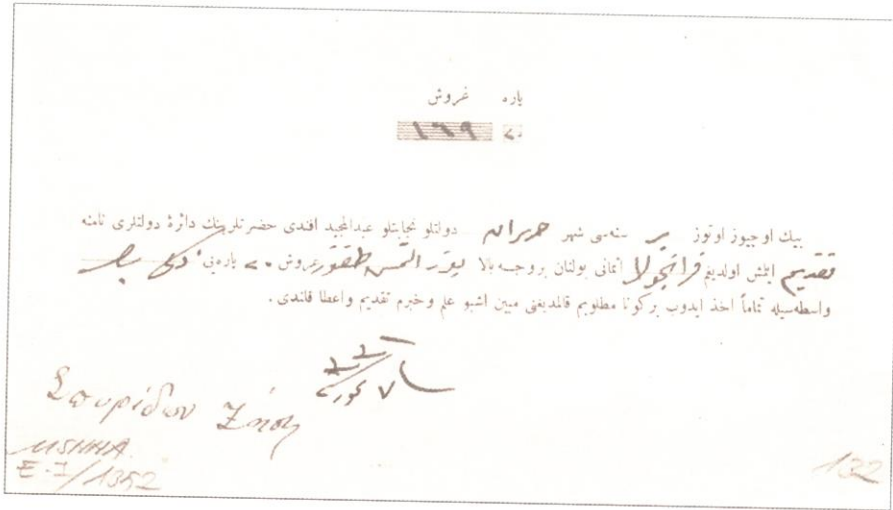 پاره غروش
٢٠ ١٦٩
بيك اوچيوز اوتوز بر سنه‌سى شهر حزيران دولتلو نجابتلو عبدالمجيد افندى حضرتلرينك دائرۀ دولتلرى نامنه
تقديم ايتمش اولديغم فرانجولا اثمانى بولنان بروجه بالا يوز التمش طقوز غروش ٢٠ پاره‌يى
واسطه‌سيله تماماً اخذ ايدوب بركونا مطلوبم قالمديغى مبين اشبو علم وخبرم تقديم واعطا قلندى .
Σπυρίδων
MSHHA
E-I/1352
132